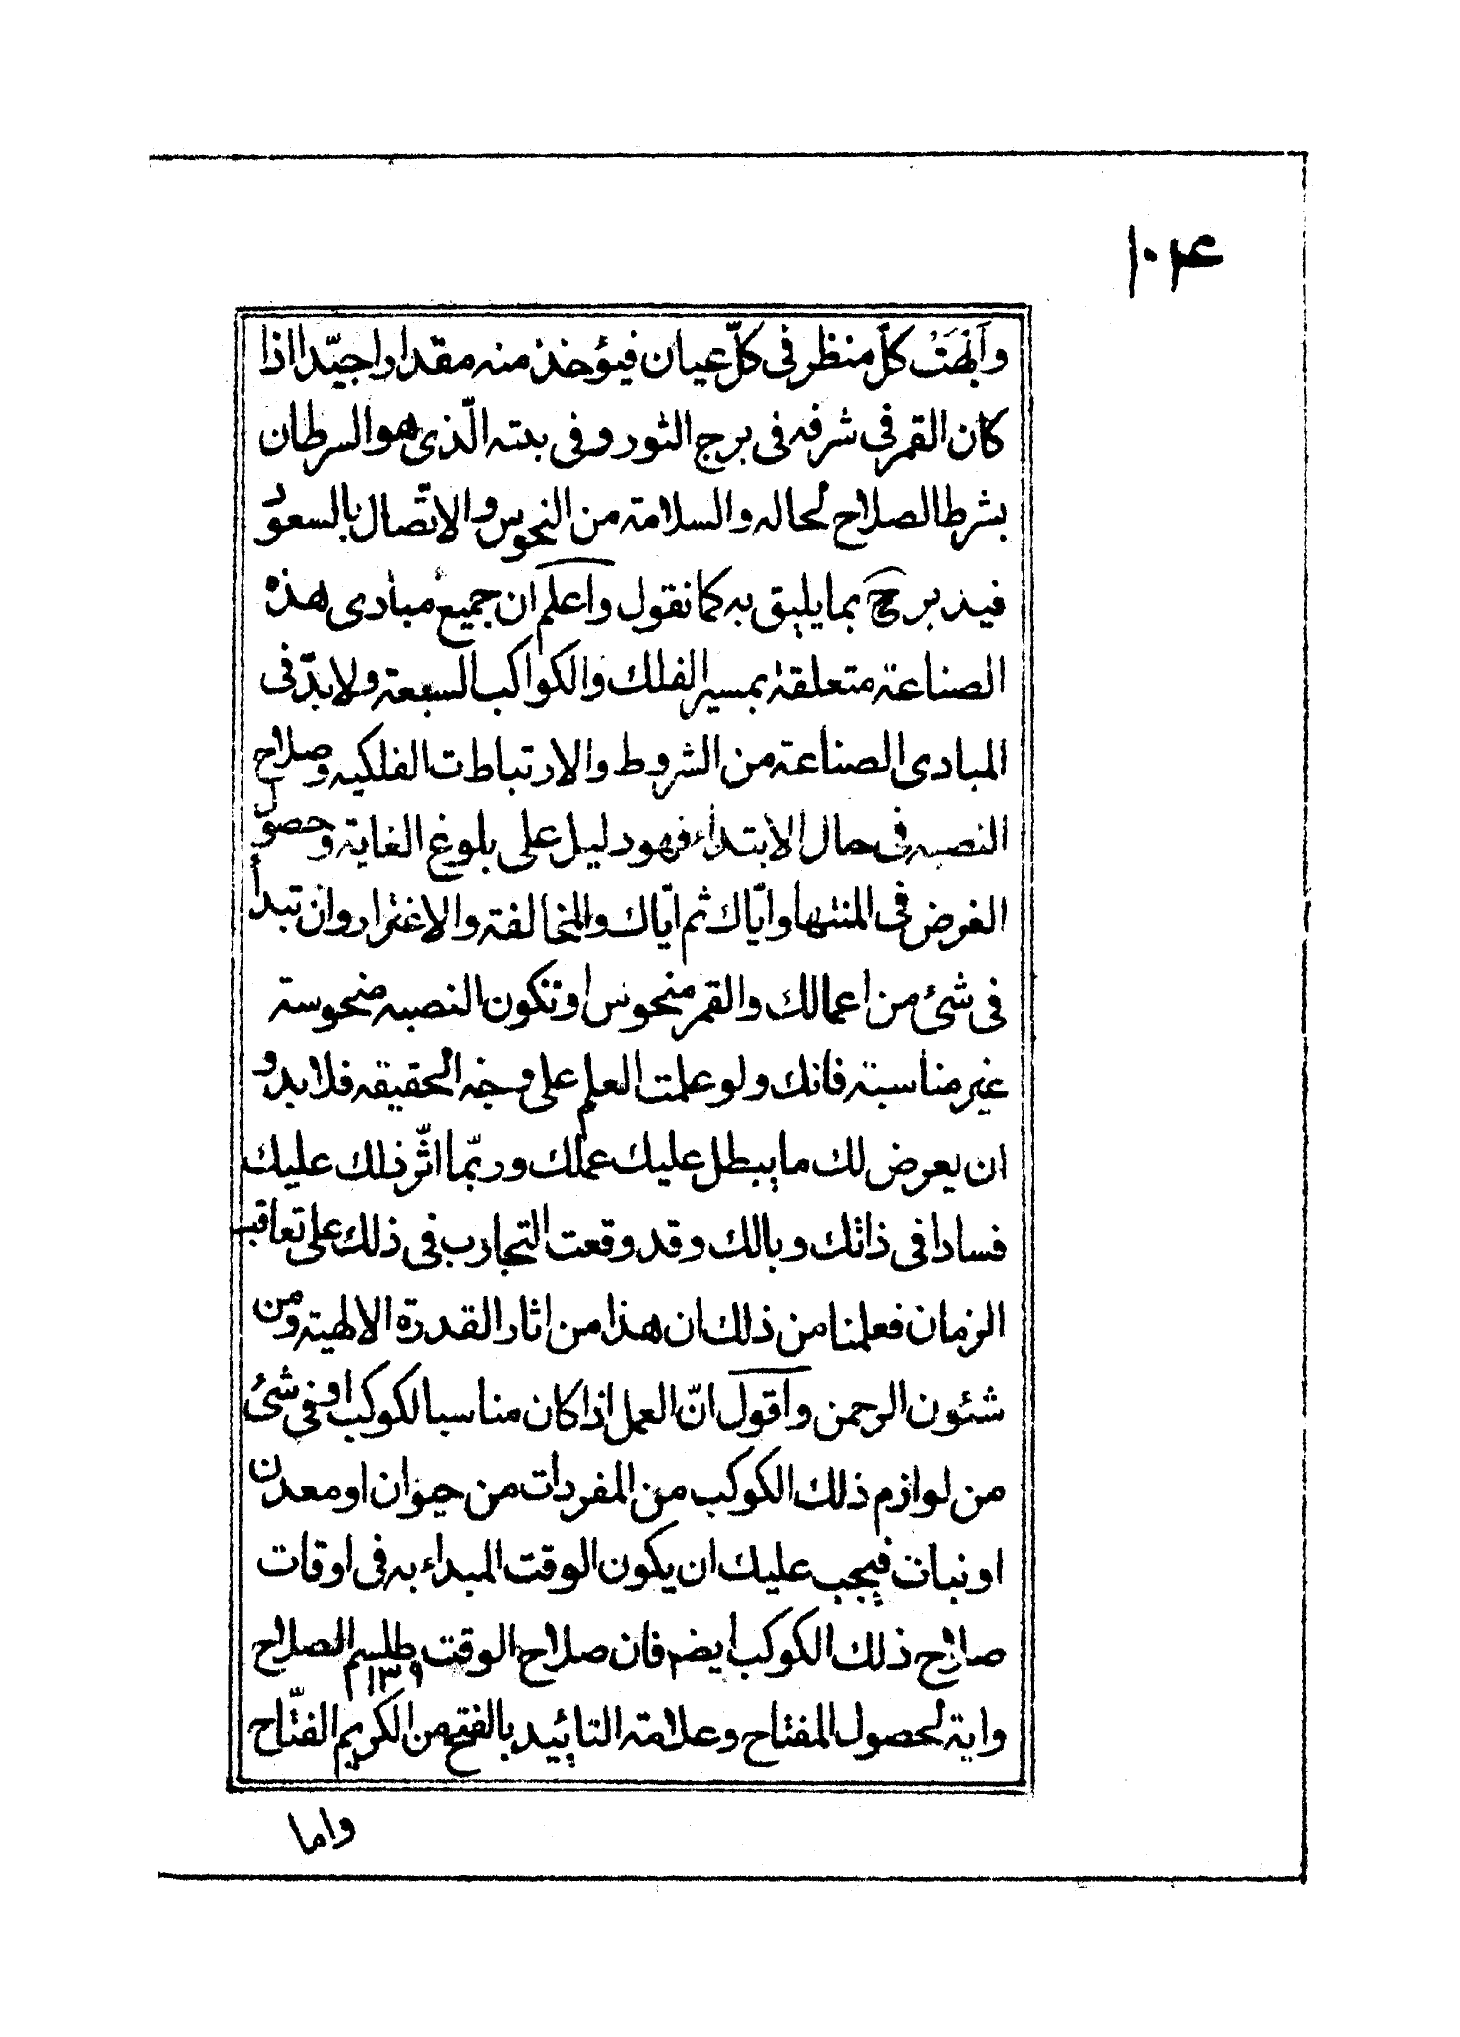 ١٠٤
وابهت كلّ منظر فى كلّ عيان فيؤخذ منه مقدارا جيّدا اذا
كان القمر فى شرفه فى برج الثور وفى بيته الّذى هو السرطان
بشرط الصلاح لحاله والسلامة من النحوس والاتّصال بالسعود
فيذبر ح بما يليق به كما نقول واعلم ان جميع مبادى هذه
الصناعة متعلقة بمسير الفلك والكواكب السبعة ولا بدّ فى
المبادى الصناعة من الشروط والارتباطات الفلكيه وصلاح
النصبه فى حال الابتداء فهو دليل على بلوغ الغاية وحصول
الغرض فى المنتها وايّاك ثم ايّاك والمخالفة والاغترار وان تبدأ
فى شئ من اعمالك والقمر منحوس او تكون النصبه منحوسة
غير مناسبة فانك ولو علمت العلم على وجه الحقيقه فلا بد و
ان يعرض لك ما يبطل عليك عملك وربّما اثّر ذلك عليك
فسادا فى ذاتك وبالك وقد وقعت التجارب فى ذلك على تعاقب
الزمان فعلمنا من ذلك ان هذا من اثار القدرة الالهية ومن
شئون الرحمن واقول انّ العمل اذا كان مناسبا لكوكب او فى شئ
من لوازم ذلك الكوكب من المفردات من حيوان او معدن
او نبات فيجب عليك ان يكون الوقت المبداء به فى اوقات
صلاح ذلك الكوكب ايضم فان صلاح الوقت طلسم الصلاح
١٣٩
واية لحصول المفتاح وعلامة التائيد بالفتح من الكريم الفتّاح
واما